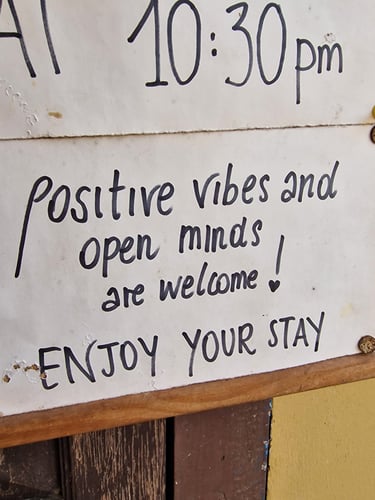 AT 10:30pm
Positive vibes and
open minds
are welcome!
ENJOY YOUR STAY